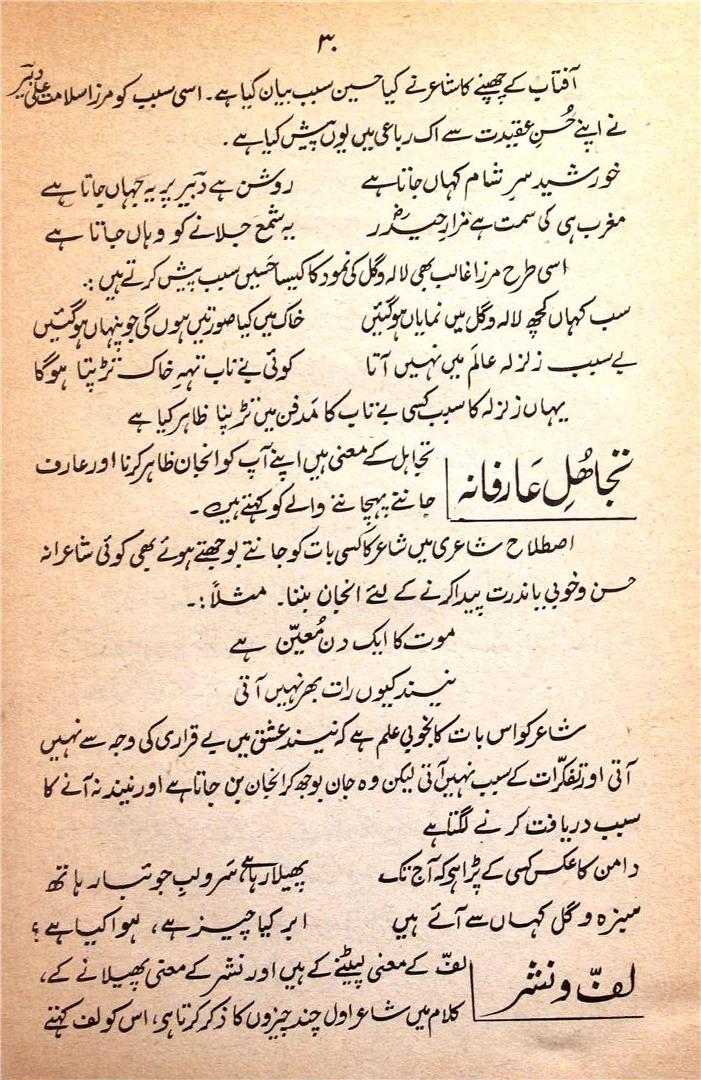 ۳۰
آفتاب کے چھپنے کا شاعر نے کیا حسین سبب بیان کیا ہے۔ اسی سبب کو مرزا سلامت علی دبیرؔ
نے اپنے حُسنِ عقیدت سے اک رباعی میں یوں پیش کیا ہے۔
خورشید سرِ شام کہاں جاتا ہے    روشن ہے دبیرؔ پر یہ جہاں جاتا ہے
مغرب ہی کی سمت ہے مزارِ حیدرؓ    یہ شمع جلانے کو وہاں جاتا ہے
اسی طرح مرزا غالب بھی لالہ و گل کی نمود کا کیسا حَسیں سبب پیش کرتے ہیں :۔
سب کہاں کچھ لالہ و گل میں نمایاں ہو گئیں    خاک میں کیا صورتیں ہوں گی جو پنہاں ہو گئیں
بے سبب زلزلہ عالَم میں نہیں آتا    کوئی بے تاب تہہِ خاک تڑپتا ہوگا
یہاں زلزلہ کا سبب کسی بے تاب کا مَدفن میں تڑپنا ظاہر کیا ہے
تجاھُلِ عَارفانہ
تجاہل کے معنی ہیں اپنے آپ کو انجان ظاہر کرنا اور عارف
جانتے پہچاننے والے کو کہتے ہیں۔
اصطلاح شاعری میں شاعر کا کسی بات کو جانتے بوجھتے ہوئے بھی کوئی شاعرانہ
حسن و خوبی یا ندرت پیدا کرنے کے لئے انجان بننا۔ مثلاً :۔
موت کا ایک دن مُعیّن ہے
نیند کیوں رات بھر نہیں آتی
شاعر کو اس بات کا بخوبی علم ہے کہ نیند عشق میں بے قراری کی وجہ سے نہیں
آتی اور تفکّرات کے سبب نہیں آتی لیکن وہ جان بوجھ کر انجان بن جاتا ہے اور نیند نہ آنے کا
سبب دریافت کرنے لگتا ہے
دامن کا عکس کسی کے پڑا ہو کہ آج تک    پھیلا رہا ہے سَرو لبِ جوئبار ہاتھ
سبزہ و گل کہاں سے آئے ہیں    ابر کیا چیز ہے، ہوا کیا ہے؟
لفّ و نشر
لفّ کے معنی لپیٹنے کے ہیں اور نشر کے معنی پھیلانے کے،
کلام میں شاعر اول چند چیزوں کا ذکر کرتا ہو، اس کو لف کہتے